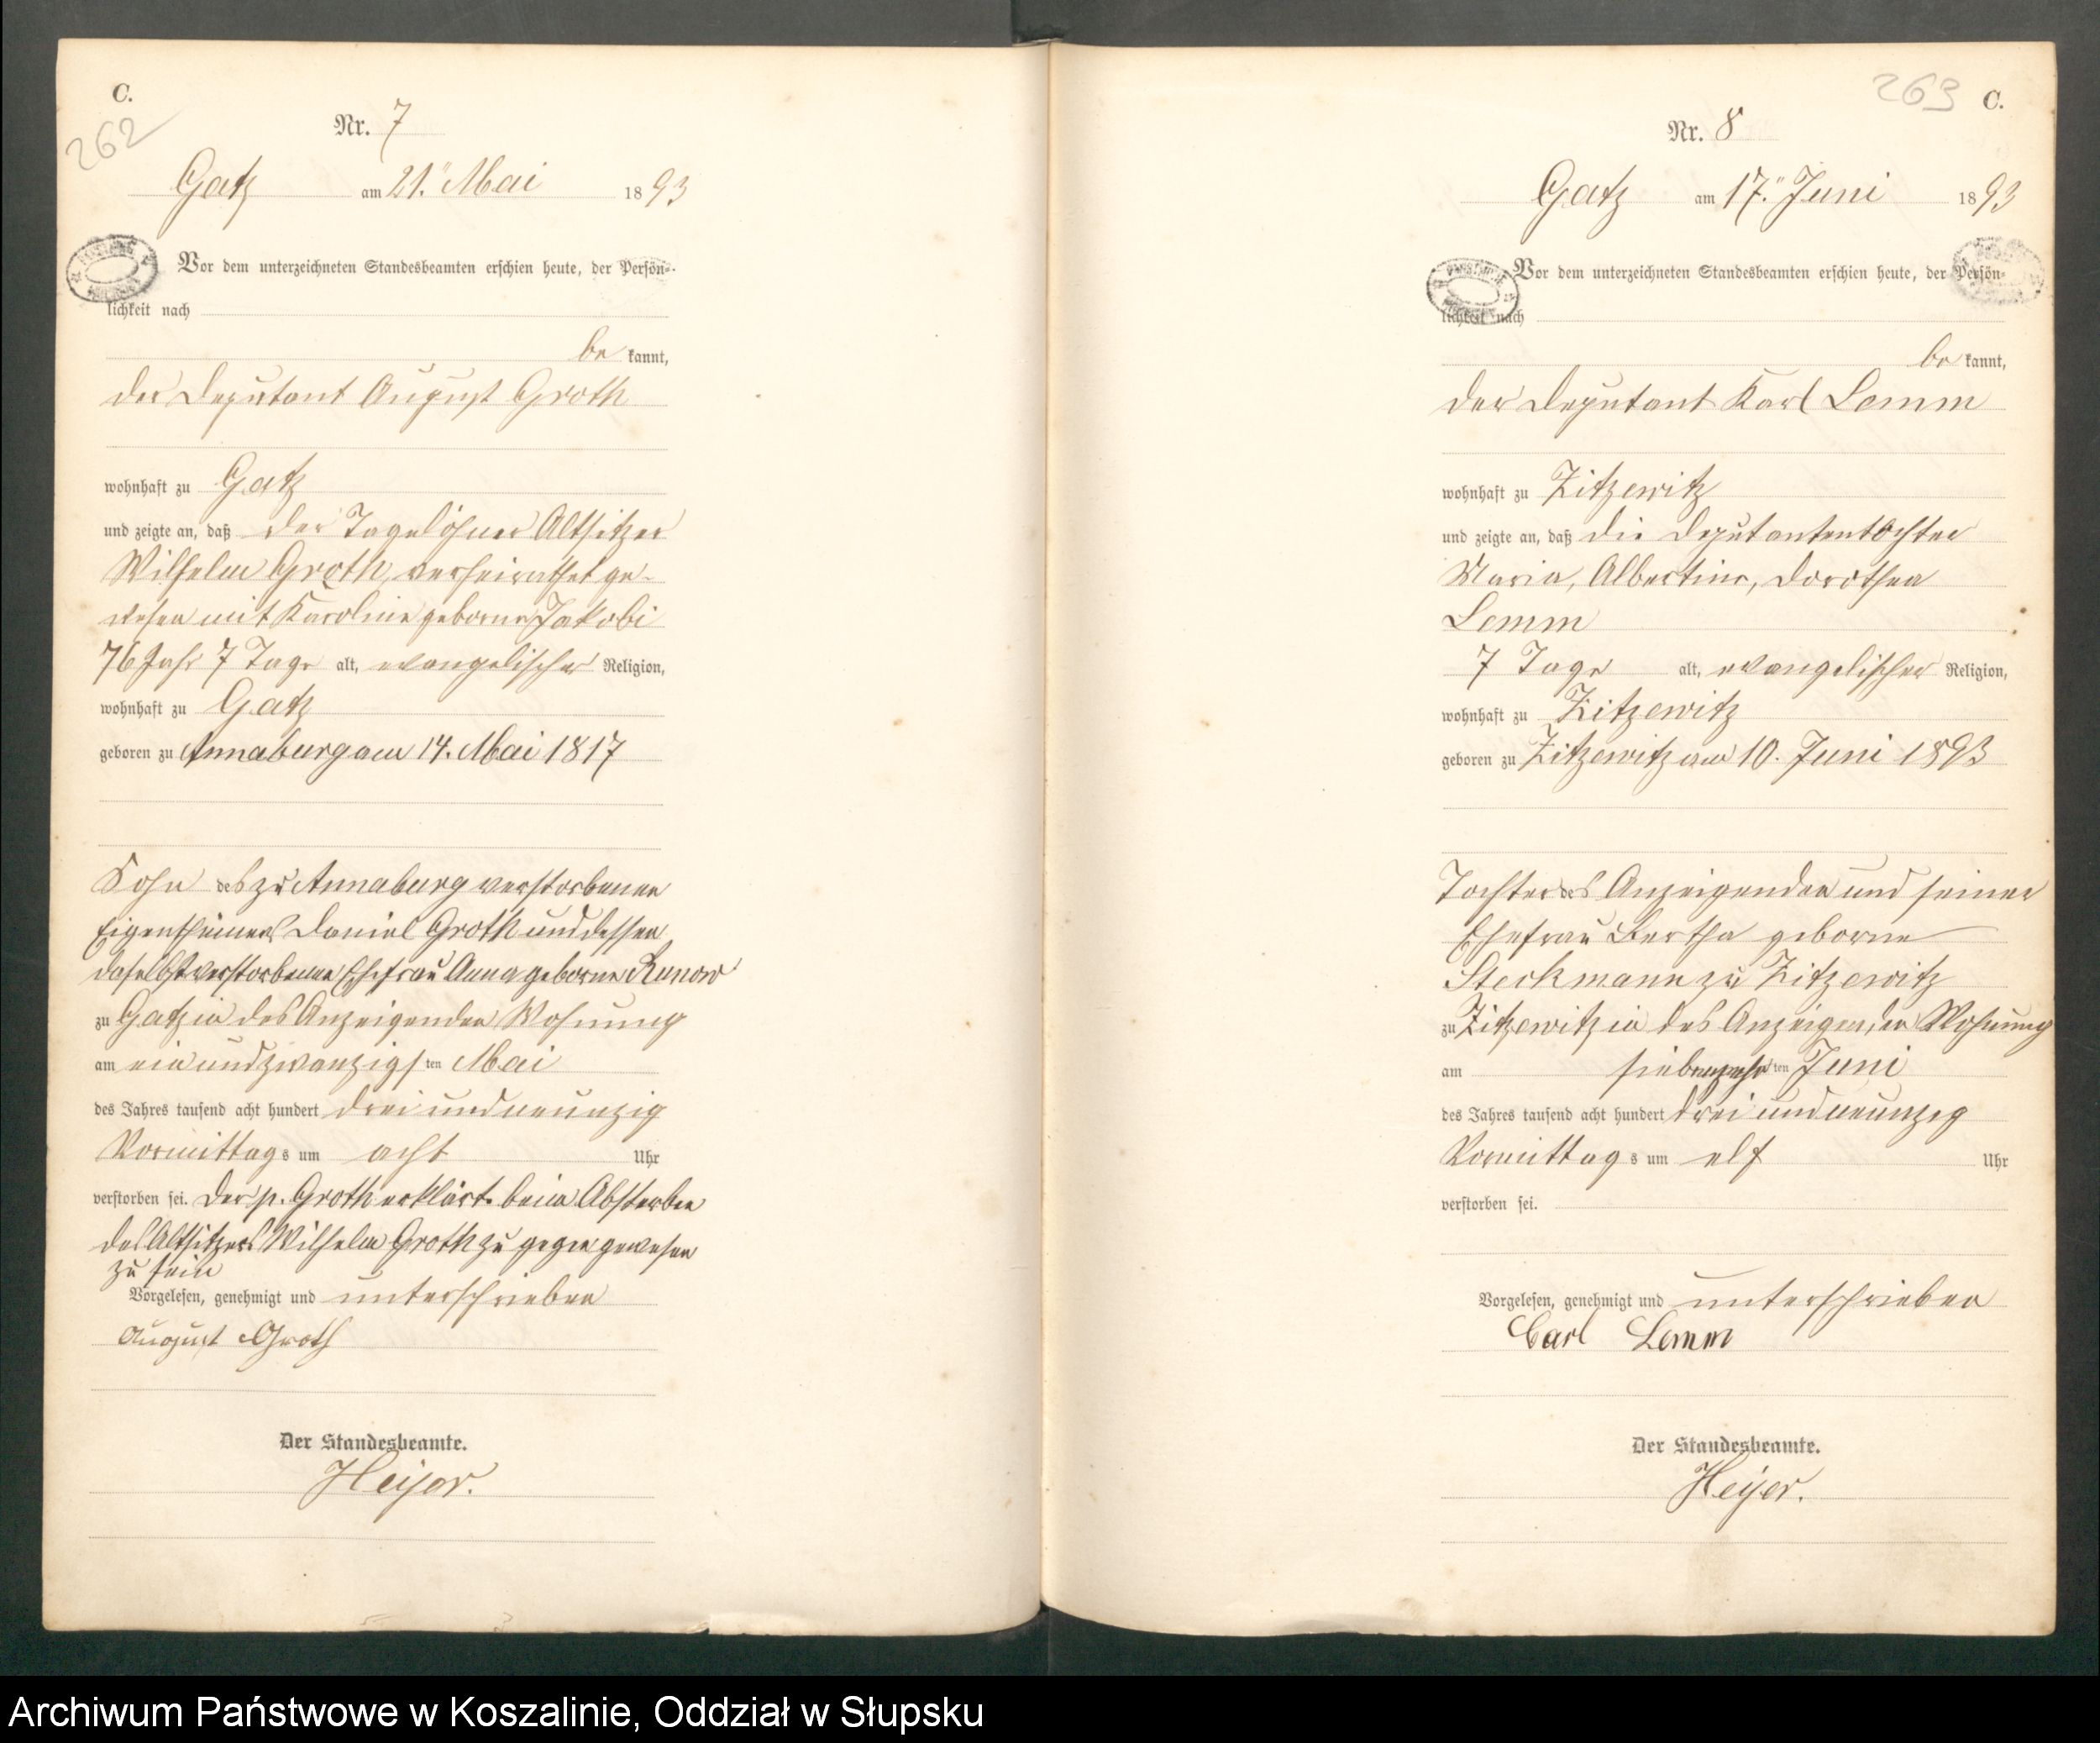 C.
262
Nr. 7
Gatz am 21. Mai 1893
Vor dem unterzeichneten Standesbeamten erschien heute, der Persön-
lichkeit nach
be kannt,
der Deputant August Groth
wohnhaft zu Gatz
und zeigte an, daß der Tagelöhner Altsitzer
Wilhelm Groth, verheirathet ge-
wesen mit Karoline geborne Jakobi
76 Jahr 7 Tage alt, evangelischer Religion,
wohnhaft zu Gatz
geboren zu Annaburg am 14. Mai 1817
Sohn des zu Annaburg verstorbenen
Eigenthümers Daniel Groth und dessen
daselbst verstorbenen Ehefrau Anna geborne Runow
zu Gatz in des Anzeigenden Wohnung
am ein und zwanzigsten Mai
des Jahres tausend acht hundert drei und neunzig
Vormittags um acht Uhr
verstorben sei. Der p. Groth erklärt beim Absterben
des Altsitzers Wilhelm Groth zu gegen gewesen
zu sein
Vorgelesen, genehmigt und unterschrieben
August Groth
Der Standesbeamte.
Heyer.
263
C.
Nr. 8
Gatz am 17. Juni 1893
Vor dem unterzeichneten Standesbeamten erschien heute, der Persön-
lichkeit nach
be kannt,
der Deputant Karl Lemm
wohnhaft zu Zitzewitz
und zeigte an, daß die Deputantentochter
Maria, Albertine, Dorothea
Lemm
7 Tage alt, evangelischer Religion,
wohnhaft zu Zitzewitz
geboren zu Zitzewitz am 10. Juni 1893
Tochter des Anzeigenden und seiner
Ehefrau Bertha geborne
Steckmann zu Zitzewitz
zu Zitzewitz in des Anzeigenden Wohnung
am siebenzehnten Juni
des Jahres tausend acht hundert drei und neunzig
Vormittags um elf Uhr
verstorben sei.
Vorgelesen, genehmigt und unterschrieben
Carl Lemm
Der Standesbeamte.
Heyer.
Archiwum Państwowe w Koszalinie, Oddział w Słupsku